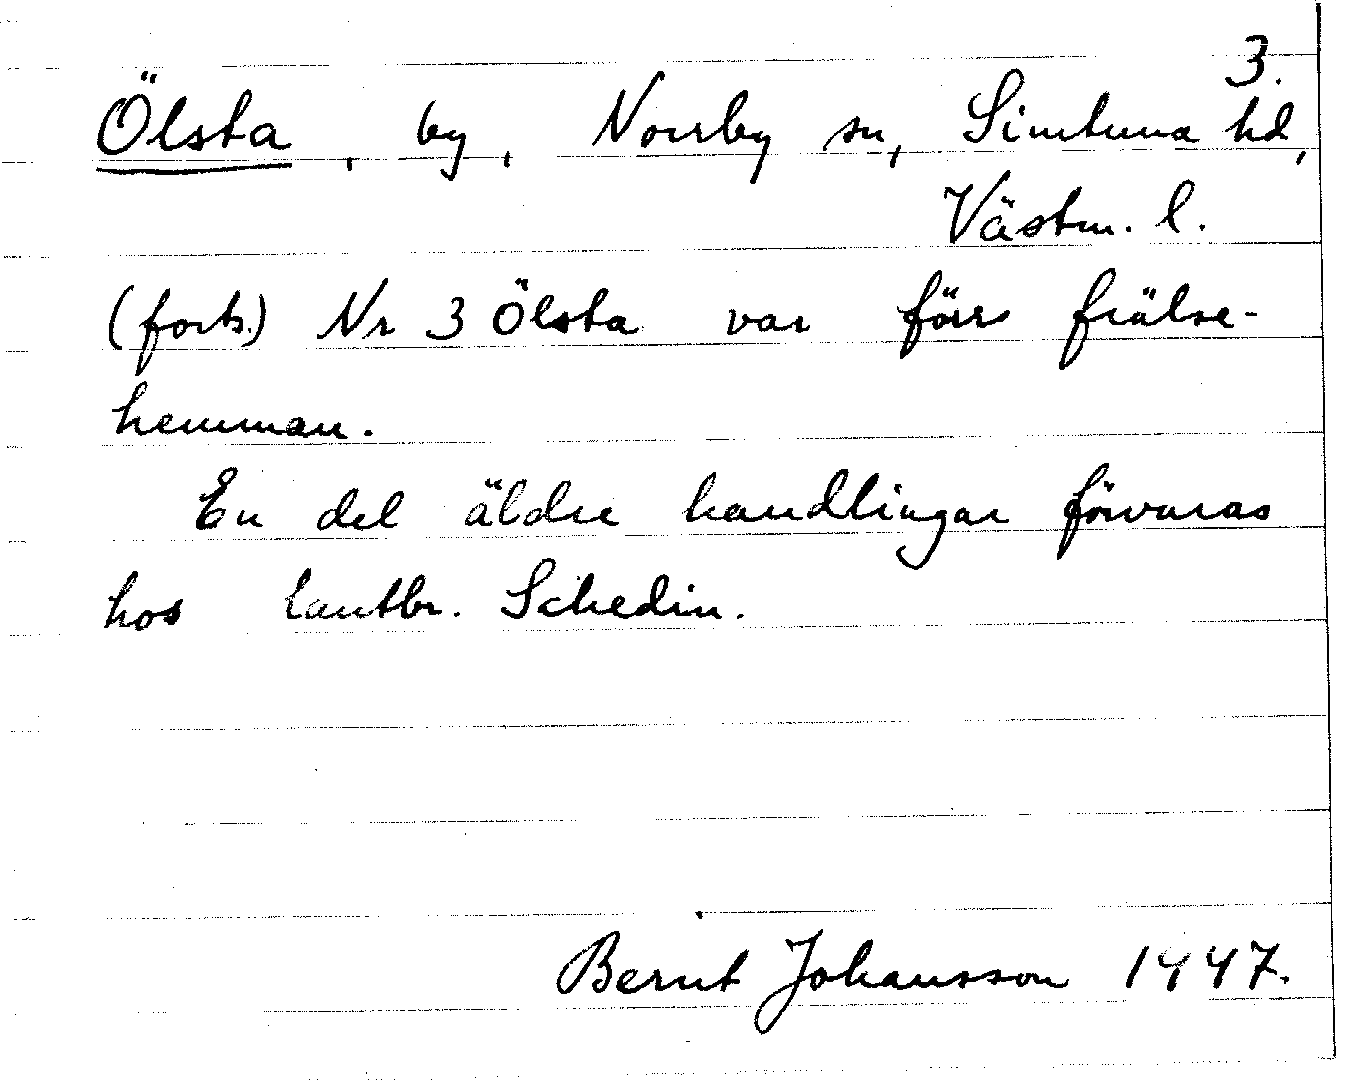 3.
Ölsta, by, Norrby sn, Simtuna hd,
Västm. l.
(forts.) Nr 3 Ölsta var förr frälse-
hemman.
En del äldre handlingar förvaras
hos lantbr. Schedin.
Bernt Johansson 1947.